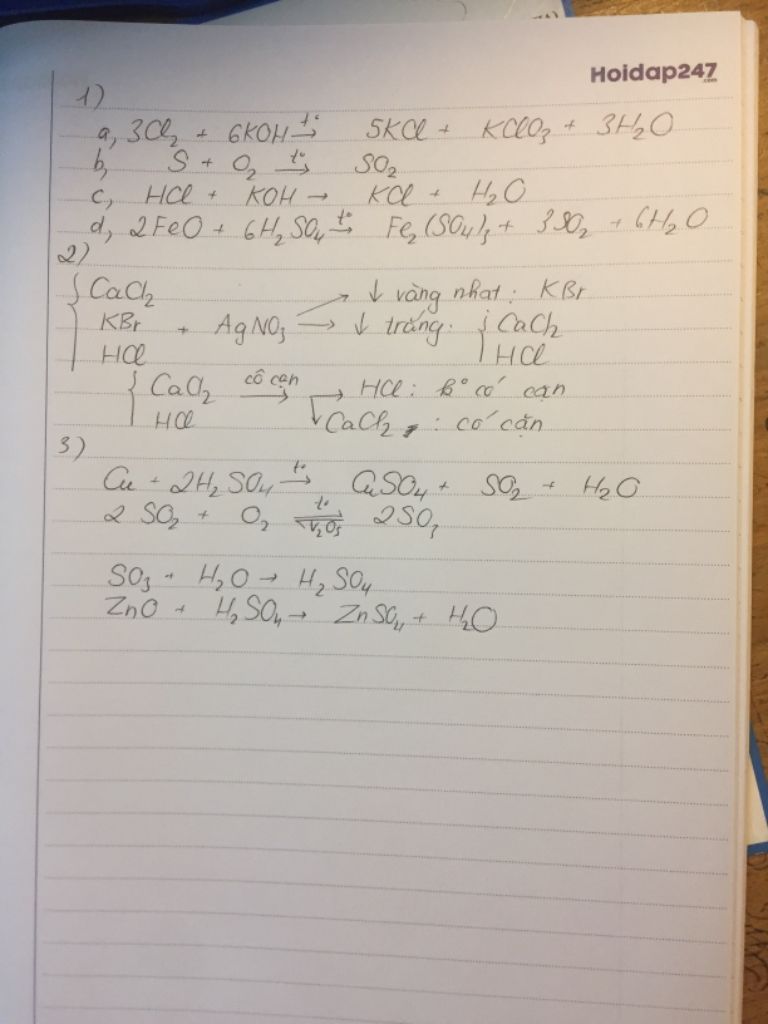 Hoidap247
.com
1)
a, 3Cl₂ + 6KOH →(t°) 5KCl + KClO₃ + 3H₂O
b, S + O₂ →(t°) SO₂
c, HCl + KOH → KCl + H₂O
d, 2FeO + 6H₂SO₄ →(t°) Fe₂(SO₄)₃ + 3SO₂ + 6H₂O
2)
{ CaCl₂ → ↓ vàng nhạt: KBr
KBr + AgNO₃ → ↓ trắng: { CaCl₂
HCl HCl
{ CaCl₂ →(cô cạn) → HCl: k° có cạn
HCl ↓ CaCl₂ : có cặn
3)
Cu + 2H₂SO₄ →(t°) CuSO₄ + SO₂ + H₂O
2SO₂ + O₂ ⇌(t°, V₂O₅) 2SO₃
SO₃ + H₂O → H₂SO₄
ZnO + H₂SO₄ → ZnSO₄ + H₂O